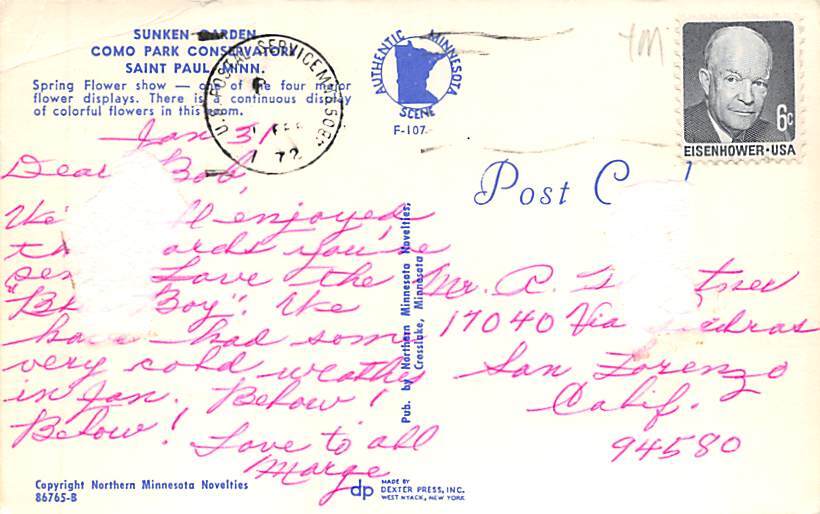 SUNKEN GARDEN
COMO PARK CONSERVATORY
SAINT PAUL, MINN.
Spring Flower show — one of the four major
flower displays. There is a continuous display
of colorful flowers in this room.
AUTHENTIC MINNESOTA
SCENE
F-107
U.S. POSTAL SERVICE MN
P
1 FEB
72
6c
EISENHOWER·USA
Post C
Jan 31
Dear Bob,
We'll enjoyed
th ards you've
sen Love the
"B Boy". We
have had some
very cold weather
in Jan. Below!
Below! Love to all
Marge
Pub. by Northern Minnesota Novelties,
Crosslake, Minnesota
Mr. tner
17040 Via dras
San Lorenzo
Calif.
94580
Copyright Northern Minnesota Novelties
86765-B
dp MADE BY
DEXTER PRESS, INC.
WEST NYACK, NEW YORK